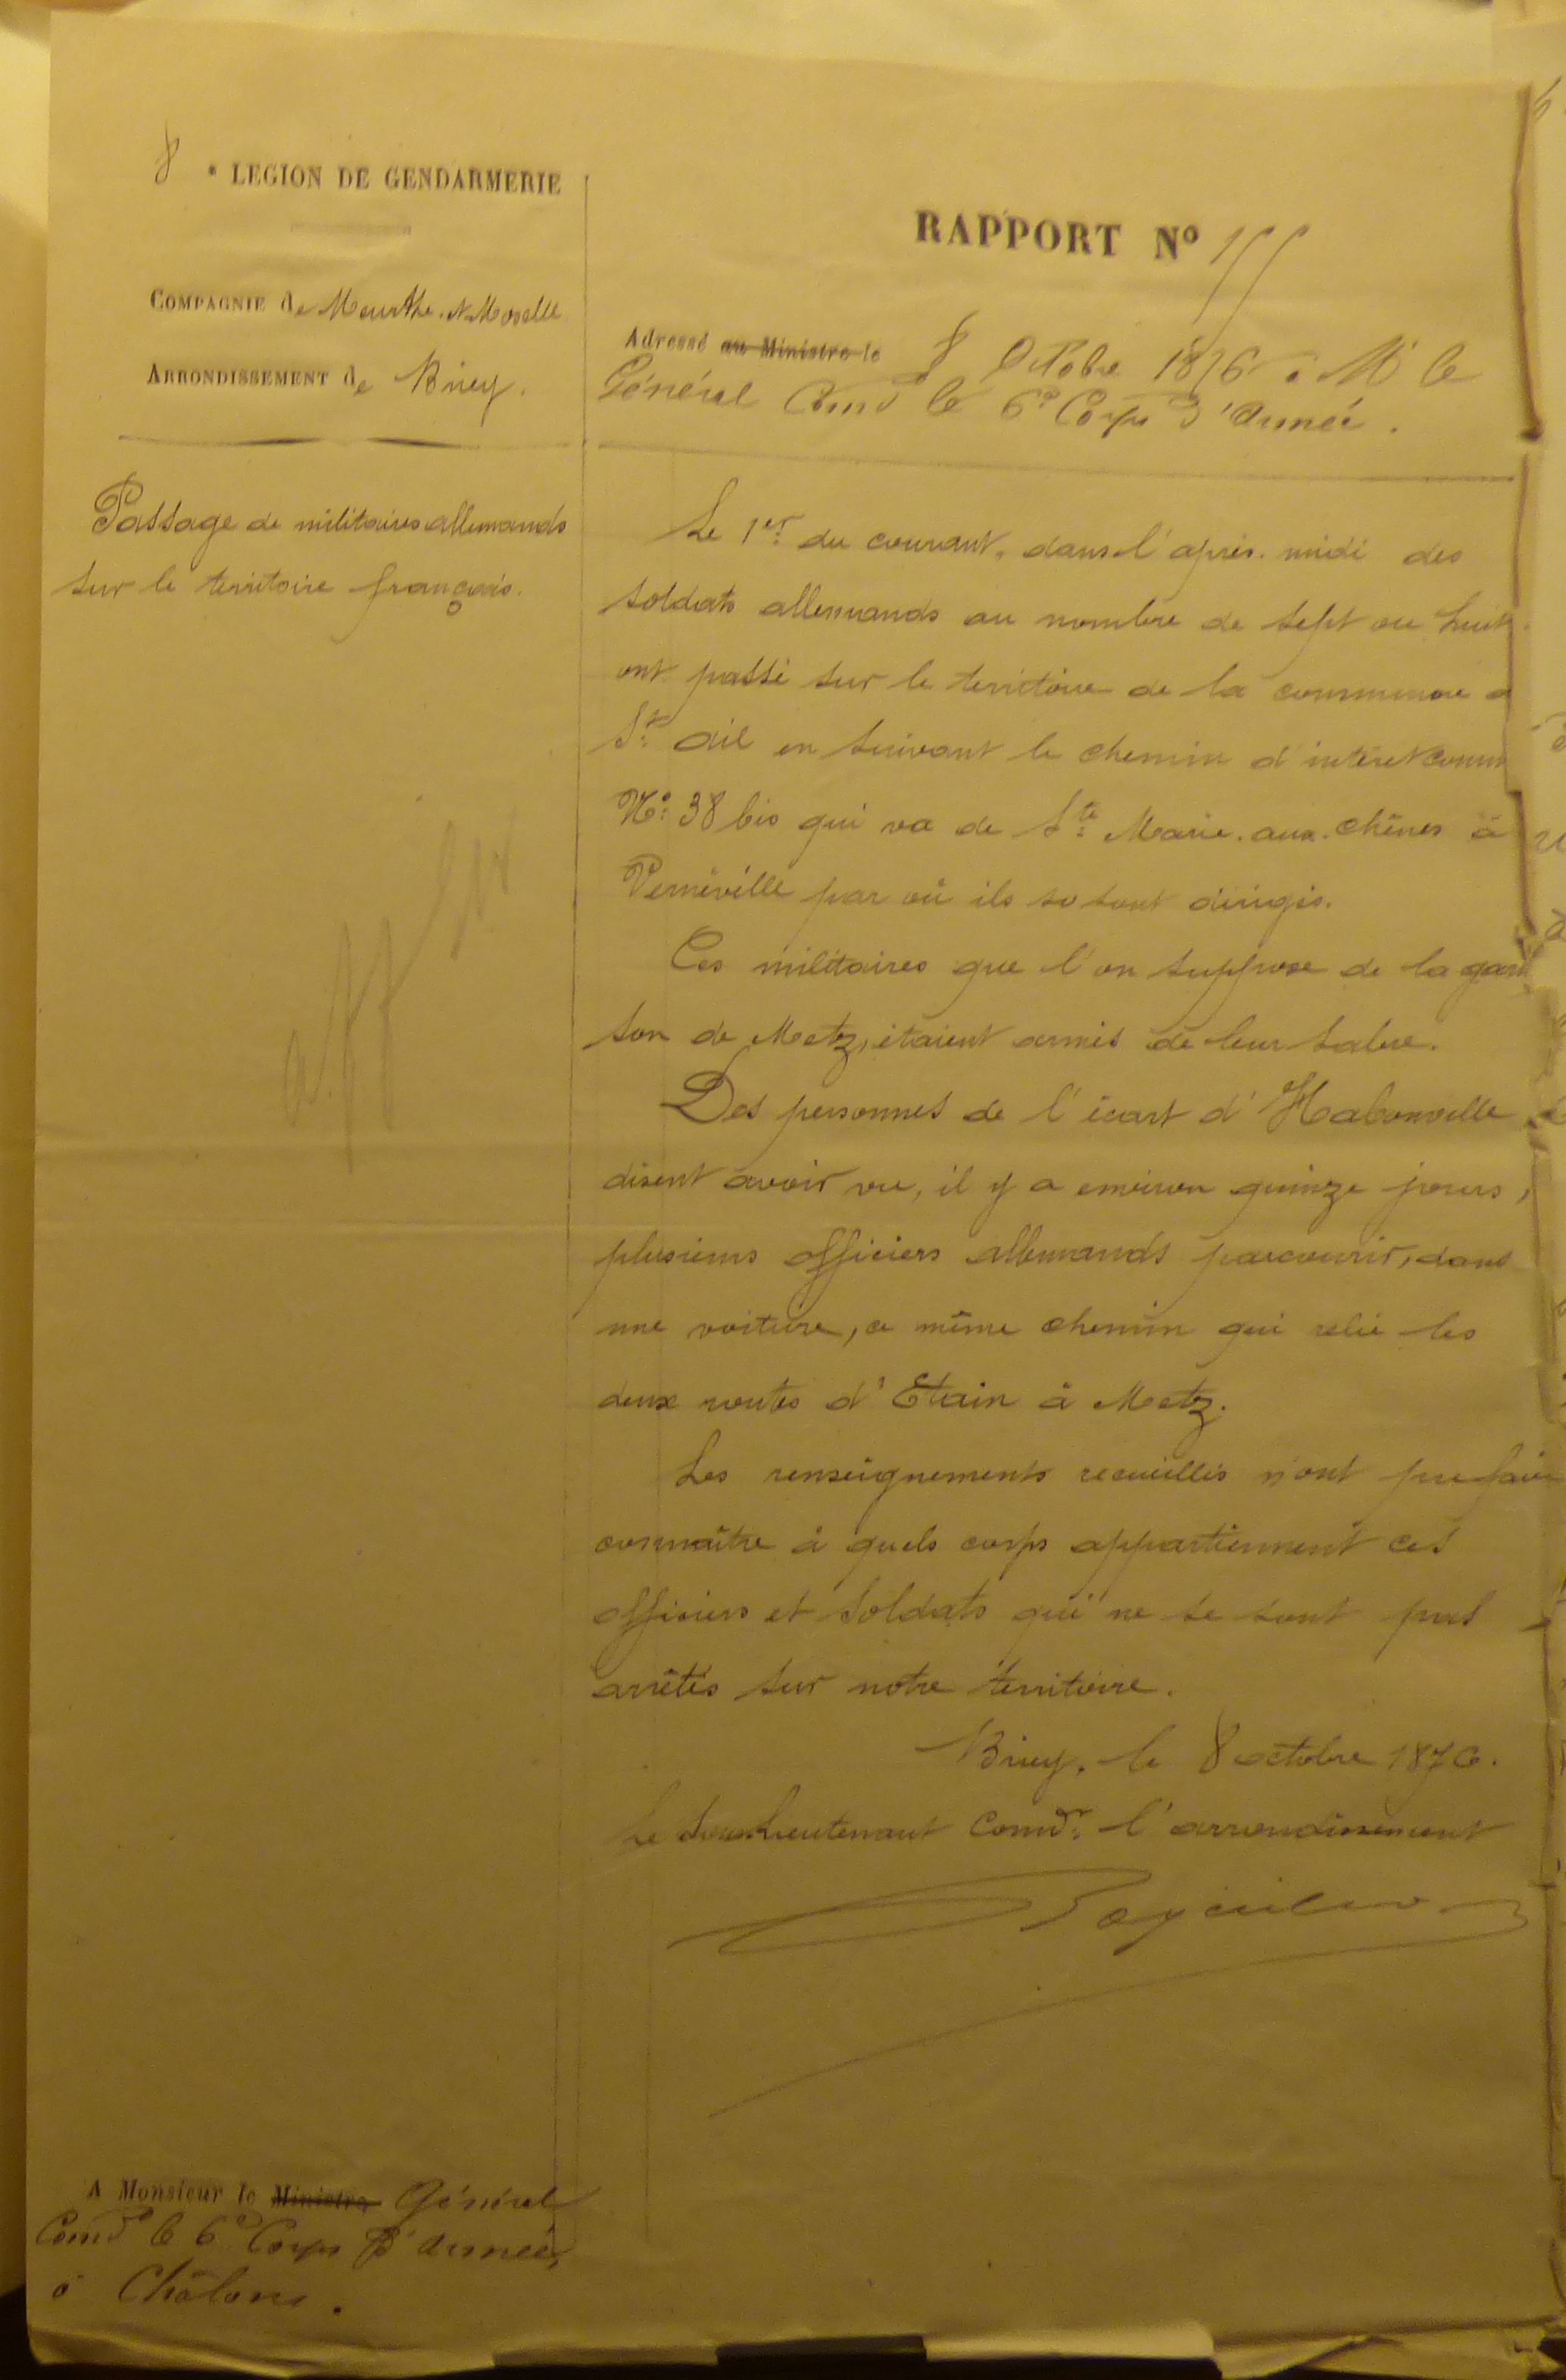 8 e LEGION DE GENDARMERIE
COMPAGNIE de Meurthe-&-Moselle
ARRONDISSEMENT de Briey.
RAPPORT No 155
Adressé au Ministre le 8 Octobre 1876 à Mr le
Général Comdt le 6e Corps d'Armée.
Passage de militaires allemands
sur le territoire français.
Le 1er du courant, dans l'après-midi des
soldats allemands au nombre de sept ou huit
ont passé sur le territoire de la commune d
St ail en suivant le chemin d'intérêt comm
No 38 bis qui va de Ste Marie-aux-chênes à
Vernéville par où ils se sont dirigés.
Ces militaires que l'on suppose de la garni
son de Metz, étaient armés de leur sabre.
Des personnes de l'écart d'Habonville
disent avoir vu, il y a environ quinze jours,
plusieurs officiers allemands parcourir, dans
une voiture, ce même chemin qui relie les
deux routes d'Etain à Metz.
Les renseignements recueillis n'ont pu faire
connaître à quels corps appartiennent ces
officiers et soldats qui ne se sont pas
arrêtés sur notre territoire.
Briey, le 8 octobre 1876.
Le Sous-Lieutenant Comdt l'arrondissement
A Monsieur le Ministre Général
Comdt le 6e Corps d'Armée,
à Châlons.